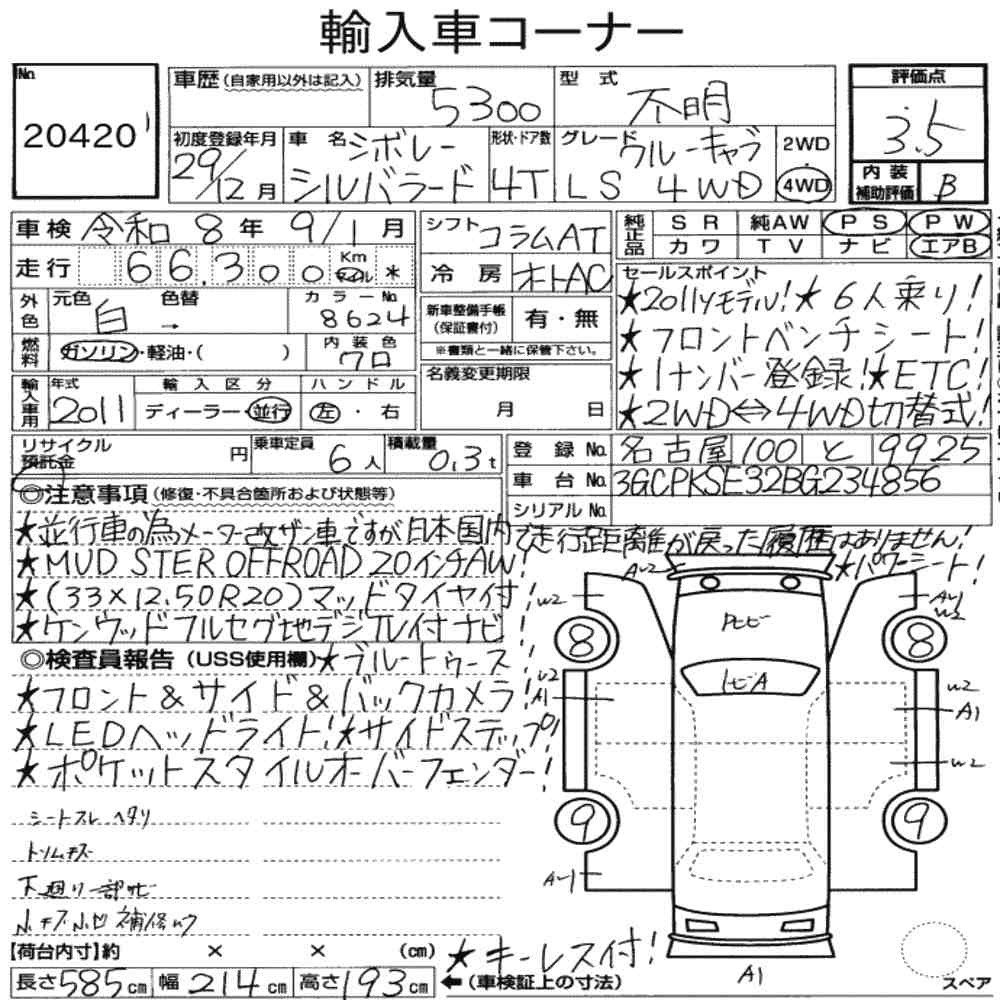 輸入車コーナー
No. 20420
車歴(自家用以外は記入) 排気量 5300 型式 不明 評価点 3.5
初度登録年月 29/12月 車名 シボレー シルバラード 形状・ドア数 4T グレード クルーキャブ LS 4WD 2WD 4WD 内装補助評価 B
車検 令和8年9/1月 シフト コラムAT 純正品 SR 純AW PS PW
カワ TV ナビ エアB
走行 66,300 Km マイル * 冷房 オートAC
外色 元色 白 → 色替 カラーNo. 8624 新車整備手帳(保証書付) 有・無
※書類と一緒に保管下さい。
燃料 ガソリン・軽油・( ) 内装色 クロ
セールスポイント
★2011yモデル!★6人乗り!
★フロントベンチシート!
★1ナンバー登録!★ETC!
★2WD⇔4WD切替式!
輸入車用 年式 2011 輸入区分 ディーラー・並行 ハンドル 左・右 名義変更期限 月 日
リサイクル預託金 円 乗車定員 6人 積載量 0.3t 登録No. 名古屋 100 と 9925
車台No. 3GCPKSE32BG234856
シリアルNo.
◎注意事項(修復・不具合箇所および状態等)
★並行車の為メーター改ザン車ですが日本国内で走行距離が戻った履歴はありません!
★MUD STER OFFROAD 20インチAW! ★パワーシート!
★(33×12.50R20)マッドタイヤ付!
★ケンウッドフルセグ地デジTV付ナビ
◎検査員報告(USS使用欄)★ブルートゥース
★フロント&サイド&バックカメラ!
★LEDヘッドライト!★サイドステップ!
★ポケットスタイルオーバーフェンダー!
シートスレ ヘタリ
トリムキズ
下廻り一部サビ
小キズ小凹 補修
【荷台内寸】約 × × (cm)
長さ585cm 幅214cm 高さ193cm ←(車検証上の寸法)
★キーレス付!
AW2
W2
8
W2
A1
9
A-1
トビA
A1
8
W2
W2
A1
W2
9
A1
スペア